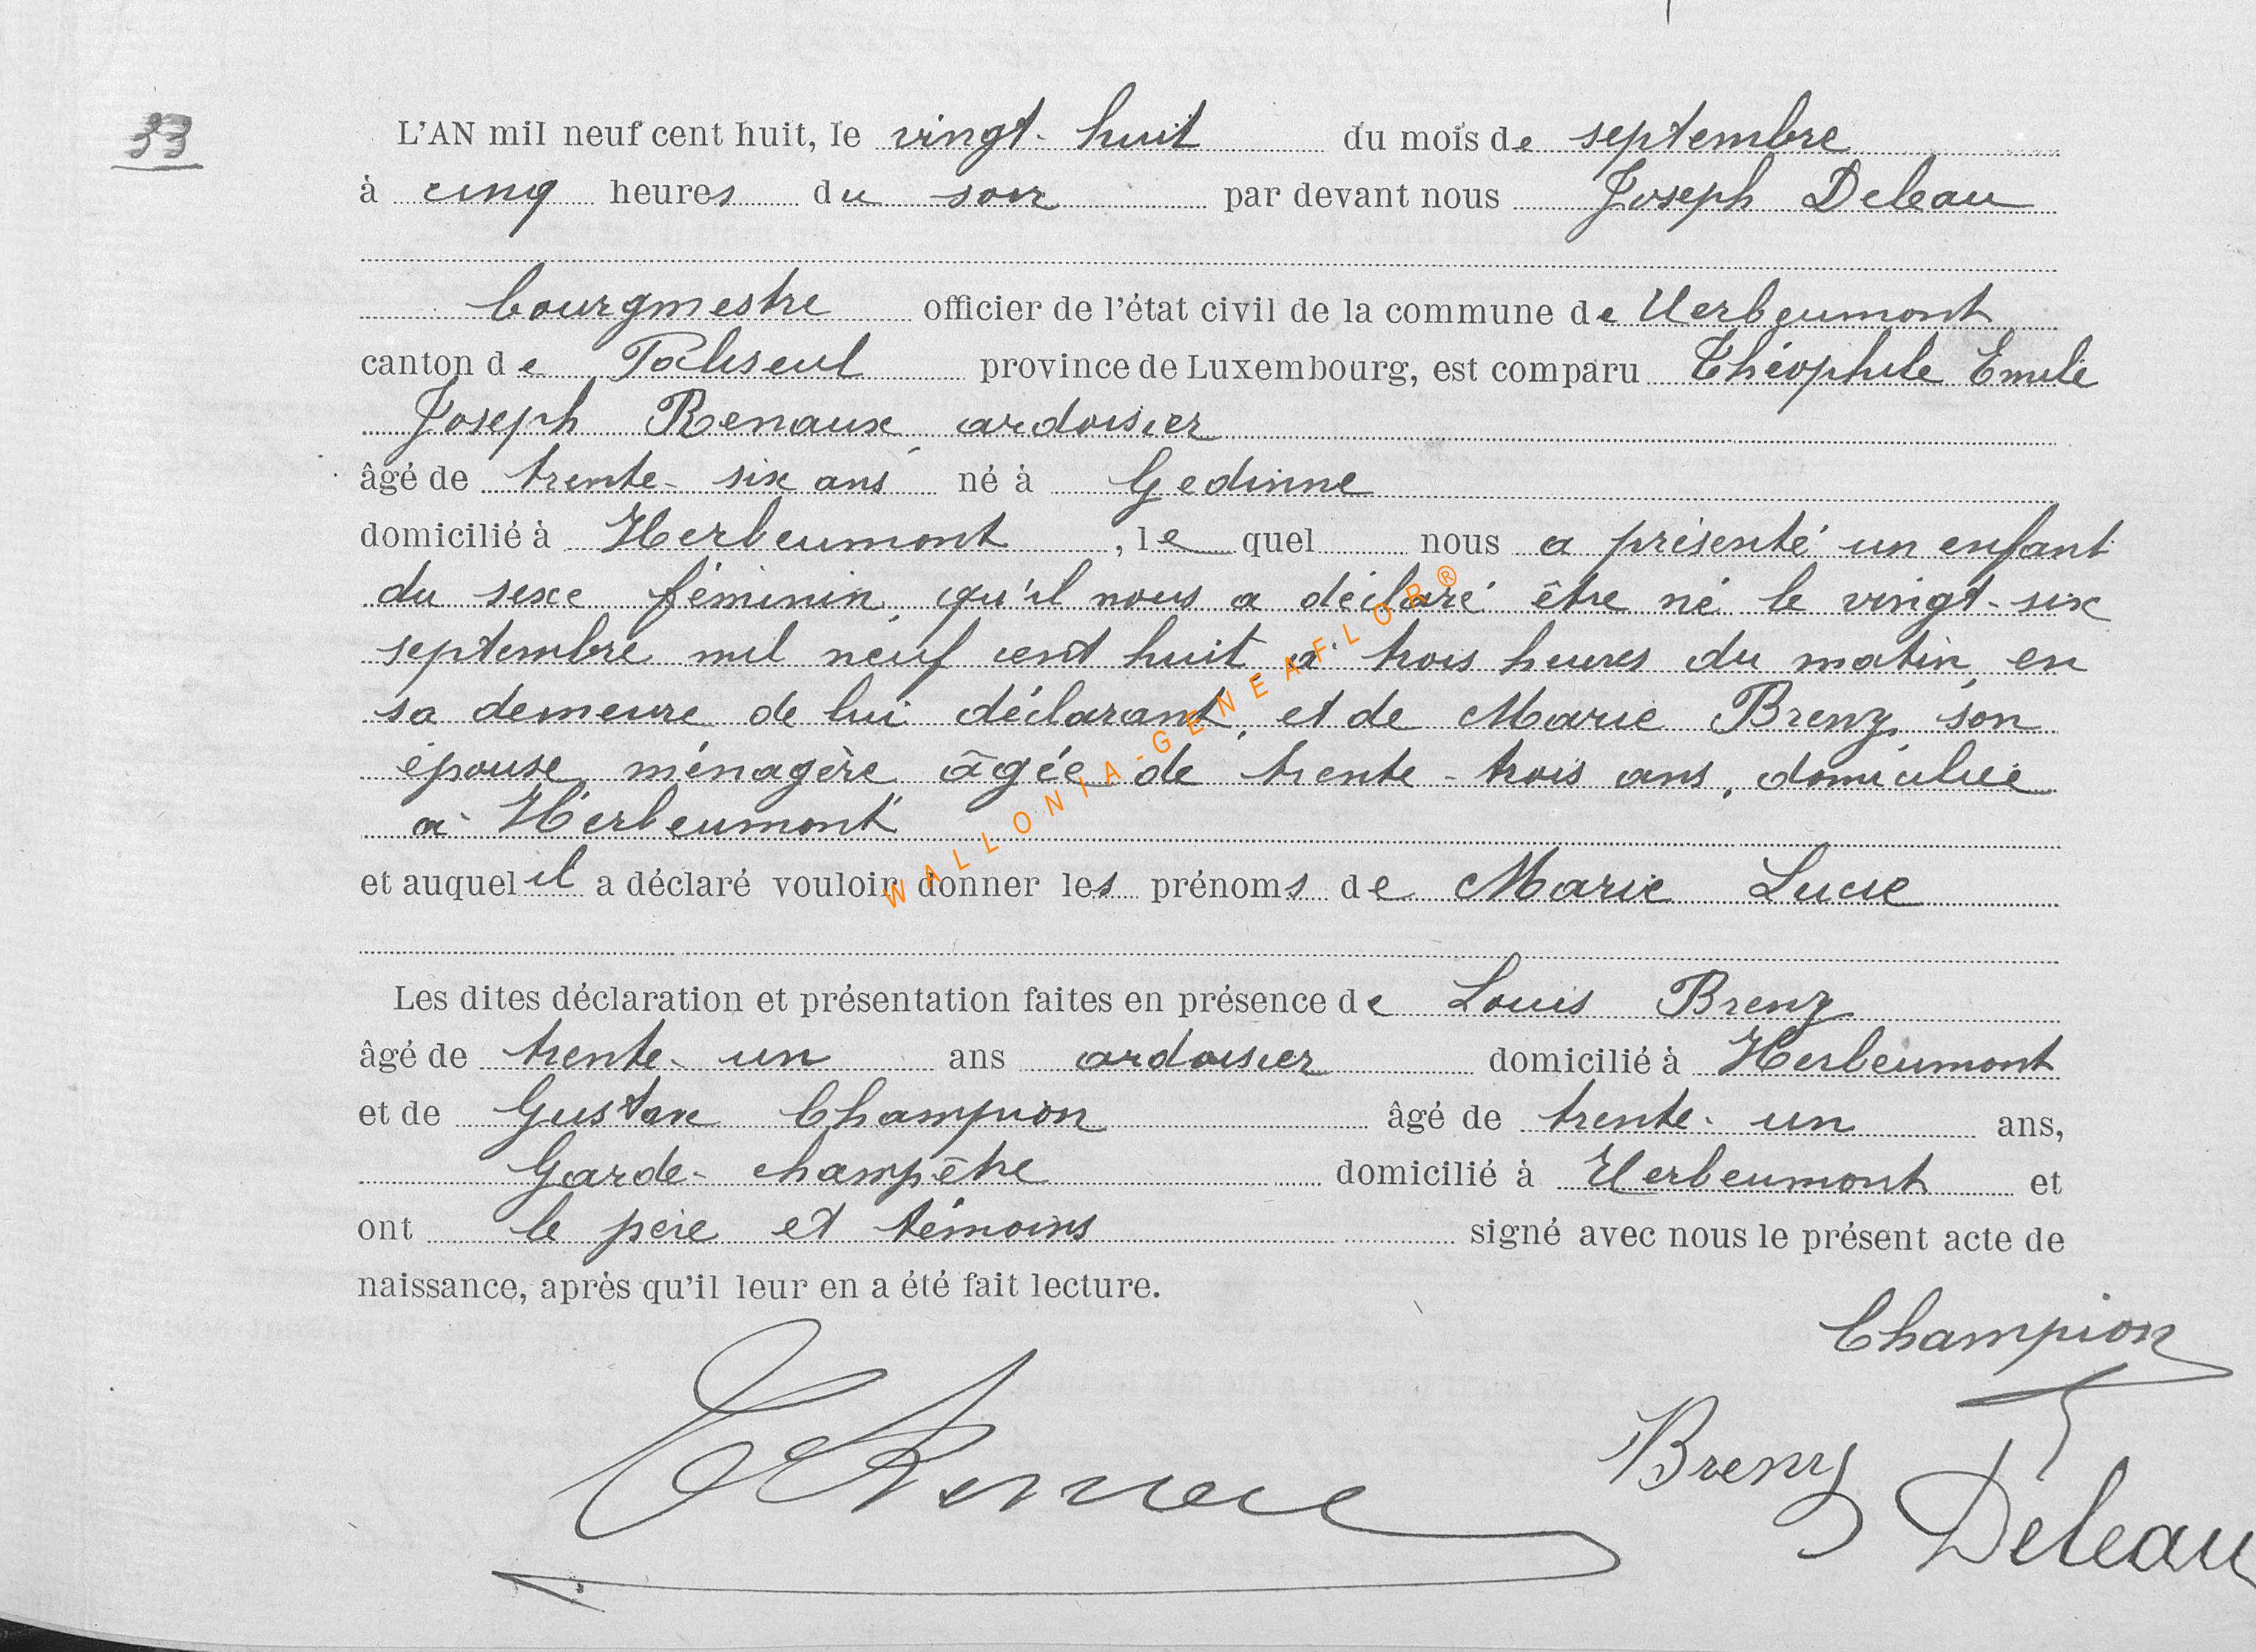 33
L'AN mil neuf cent huit, le vingt-huit du mois de septembre
à cinq heures du soir par devant nous Joseph Deleau
bourgmestre officier de l'état civil de la commune de Herbeumont
canton de Paliseul province de Luxembourg, est comparu Théophile Emile
Joseph Renaux, ardoisier
âgé de trente-six ans né à Gedinne
domicilié à Herbeumont, lequel nous a présenté un enfant
du sexe féminin, qu'il nous a déclaré être né le vingt-six
septembre mil neuf cent huit, à trois heures du matin, en
sa demeure de lui déclarant, et de Marie Breny, son
épouse, ménagère âgée de trente-trois ans, domiciliée
à Herbeumont
et auquel il a déclaré vouloir donner les prénoms de Marie Lucie
Les dites déclaration et présentation faites en présence de Louis Breny
âgé de trente-un ans ardoisier domicilié à Herbeumont
et de Gustave Champion âgé de trente-un ans,
Garde-champêtre domicilié à Herbeumont et
ont le père et témoins signé avec nous le présent acte de
naissance, après qu'il leur en a été fait lecture.
Champion
Breny
Deleau
WALLONIA-GENEAFLOR®